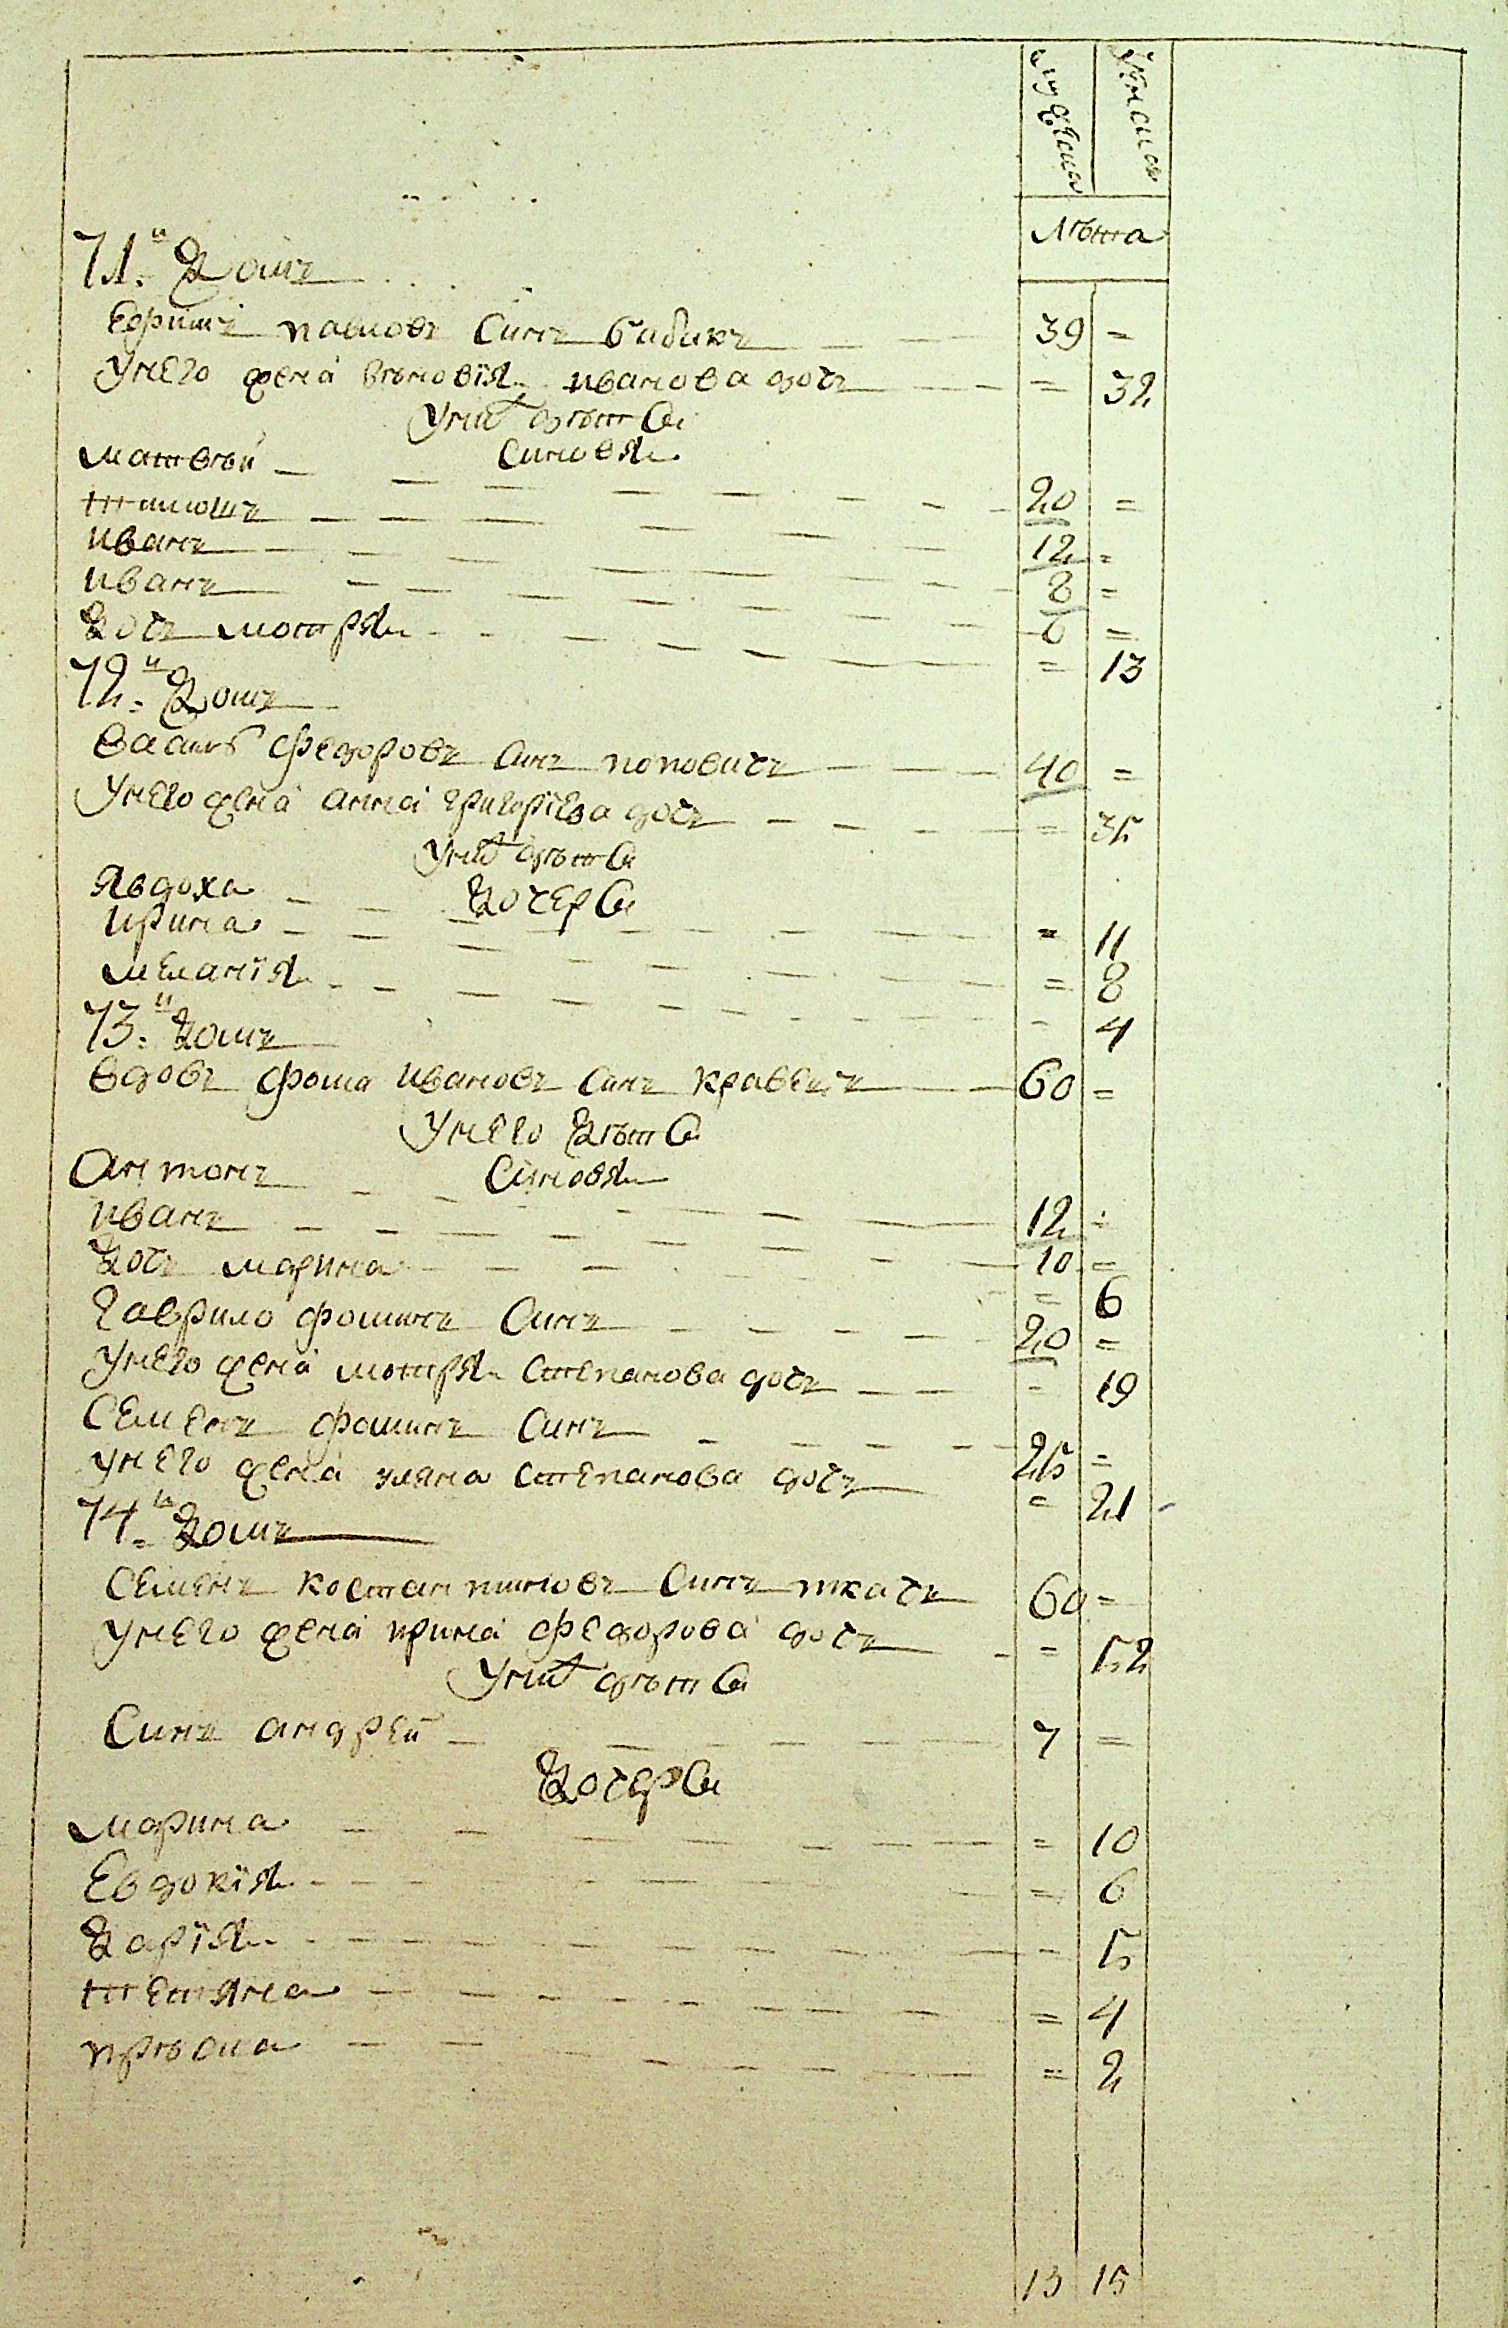 мужеска
женска
лѣта
71.й Домъ
Ефимъ павловъ Синъ бабикъ 39 =
Унего жена зѣновія иванова дочь = 32
Унихъ дѣти
Синовя
матвѣй 20 =
тимошъ 12 =
иванъ 8 =
иванъ 6 =
Дочь мотря = 13
72.й Домъ
василь федоровъ Синъ поповичъ 40 =
Унего жена анна григоріева дочь = 35
Унихъ дѣти
Дочери
Явдоха = 11
ирина = 8
меланія - 4
73.й Домъ
вдовъ фома ивановъ Синъ кравецъ 60 =
Унего Дѣти
Синовя
Антонъ 12 =
иванъ 10 =
Дочь марина = 6
гаврило фоминъ Синъ 20 =
Унего жена мотря Степанова дочь - 19
Семенъ фоминъ Синъ 25 =
унего жена уляна Степанова дочь = 21
74.й Домъ
Семенъ костантиновъ Синъ ткачъ 60 =
унего жена ирина федорова дочь = 52
Унихъ дѣти
Синъ андрей 7 =
Дочери
марина = 10
Евдокія = 6
Дарія - 5
тетяна = 4
прѣсиа = 2
13 15